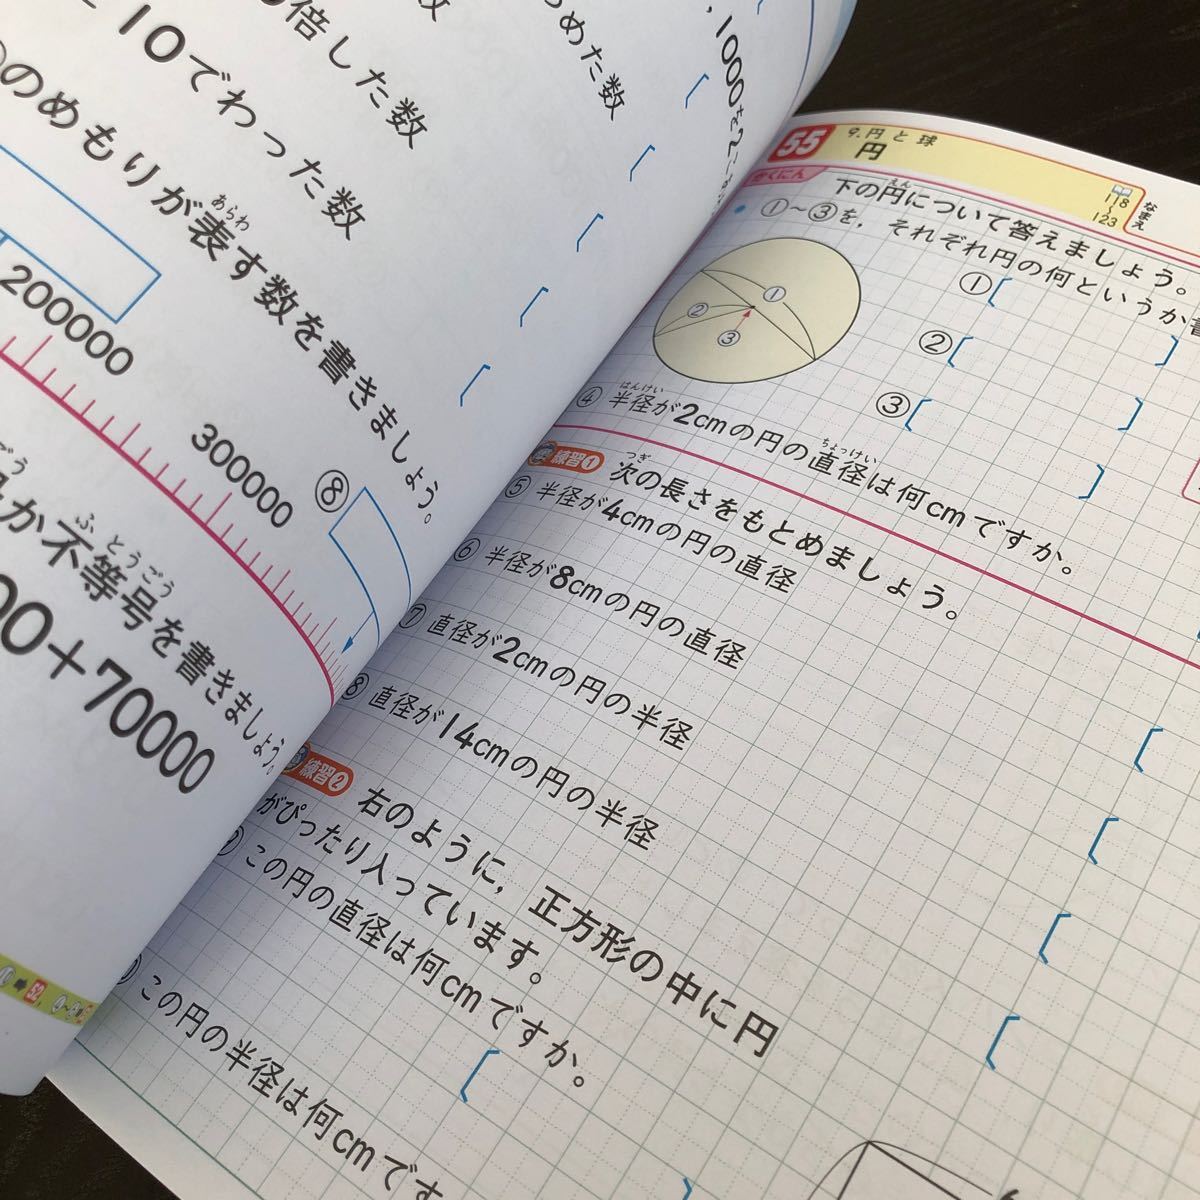 倍した数
10でわった数
のめもりが表す数を書きましょう。
あらわ
200000
300000
⑧
か不等号を書きましょう。
ふとうごう
00+70000
めた数
1000を2こ
55
9.円と球
円
118
〜
123
なまえ
かくにん
下の円について答えましょう。
えん
①〜③を，それぞれ円の何というか書
①
②
③
①
②
③
④ 半径が2cmの円の直径は何cmですか。
はんけい
ちょっけい
練習①
次の長さをもとめましょう。
つぎ
⑤ 半径が4cmの円の直径
⑥ 半径が8cmの円の直径
⑦ 直径が2cmの円の半径
⑧ 直径が14cmの円の半径
練習②
右のように，正方形の中に円
がぴったり入っています。
この円の直径は何cmですか。
この円の半径は何cmです
52